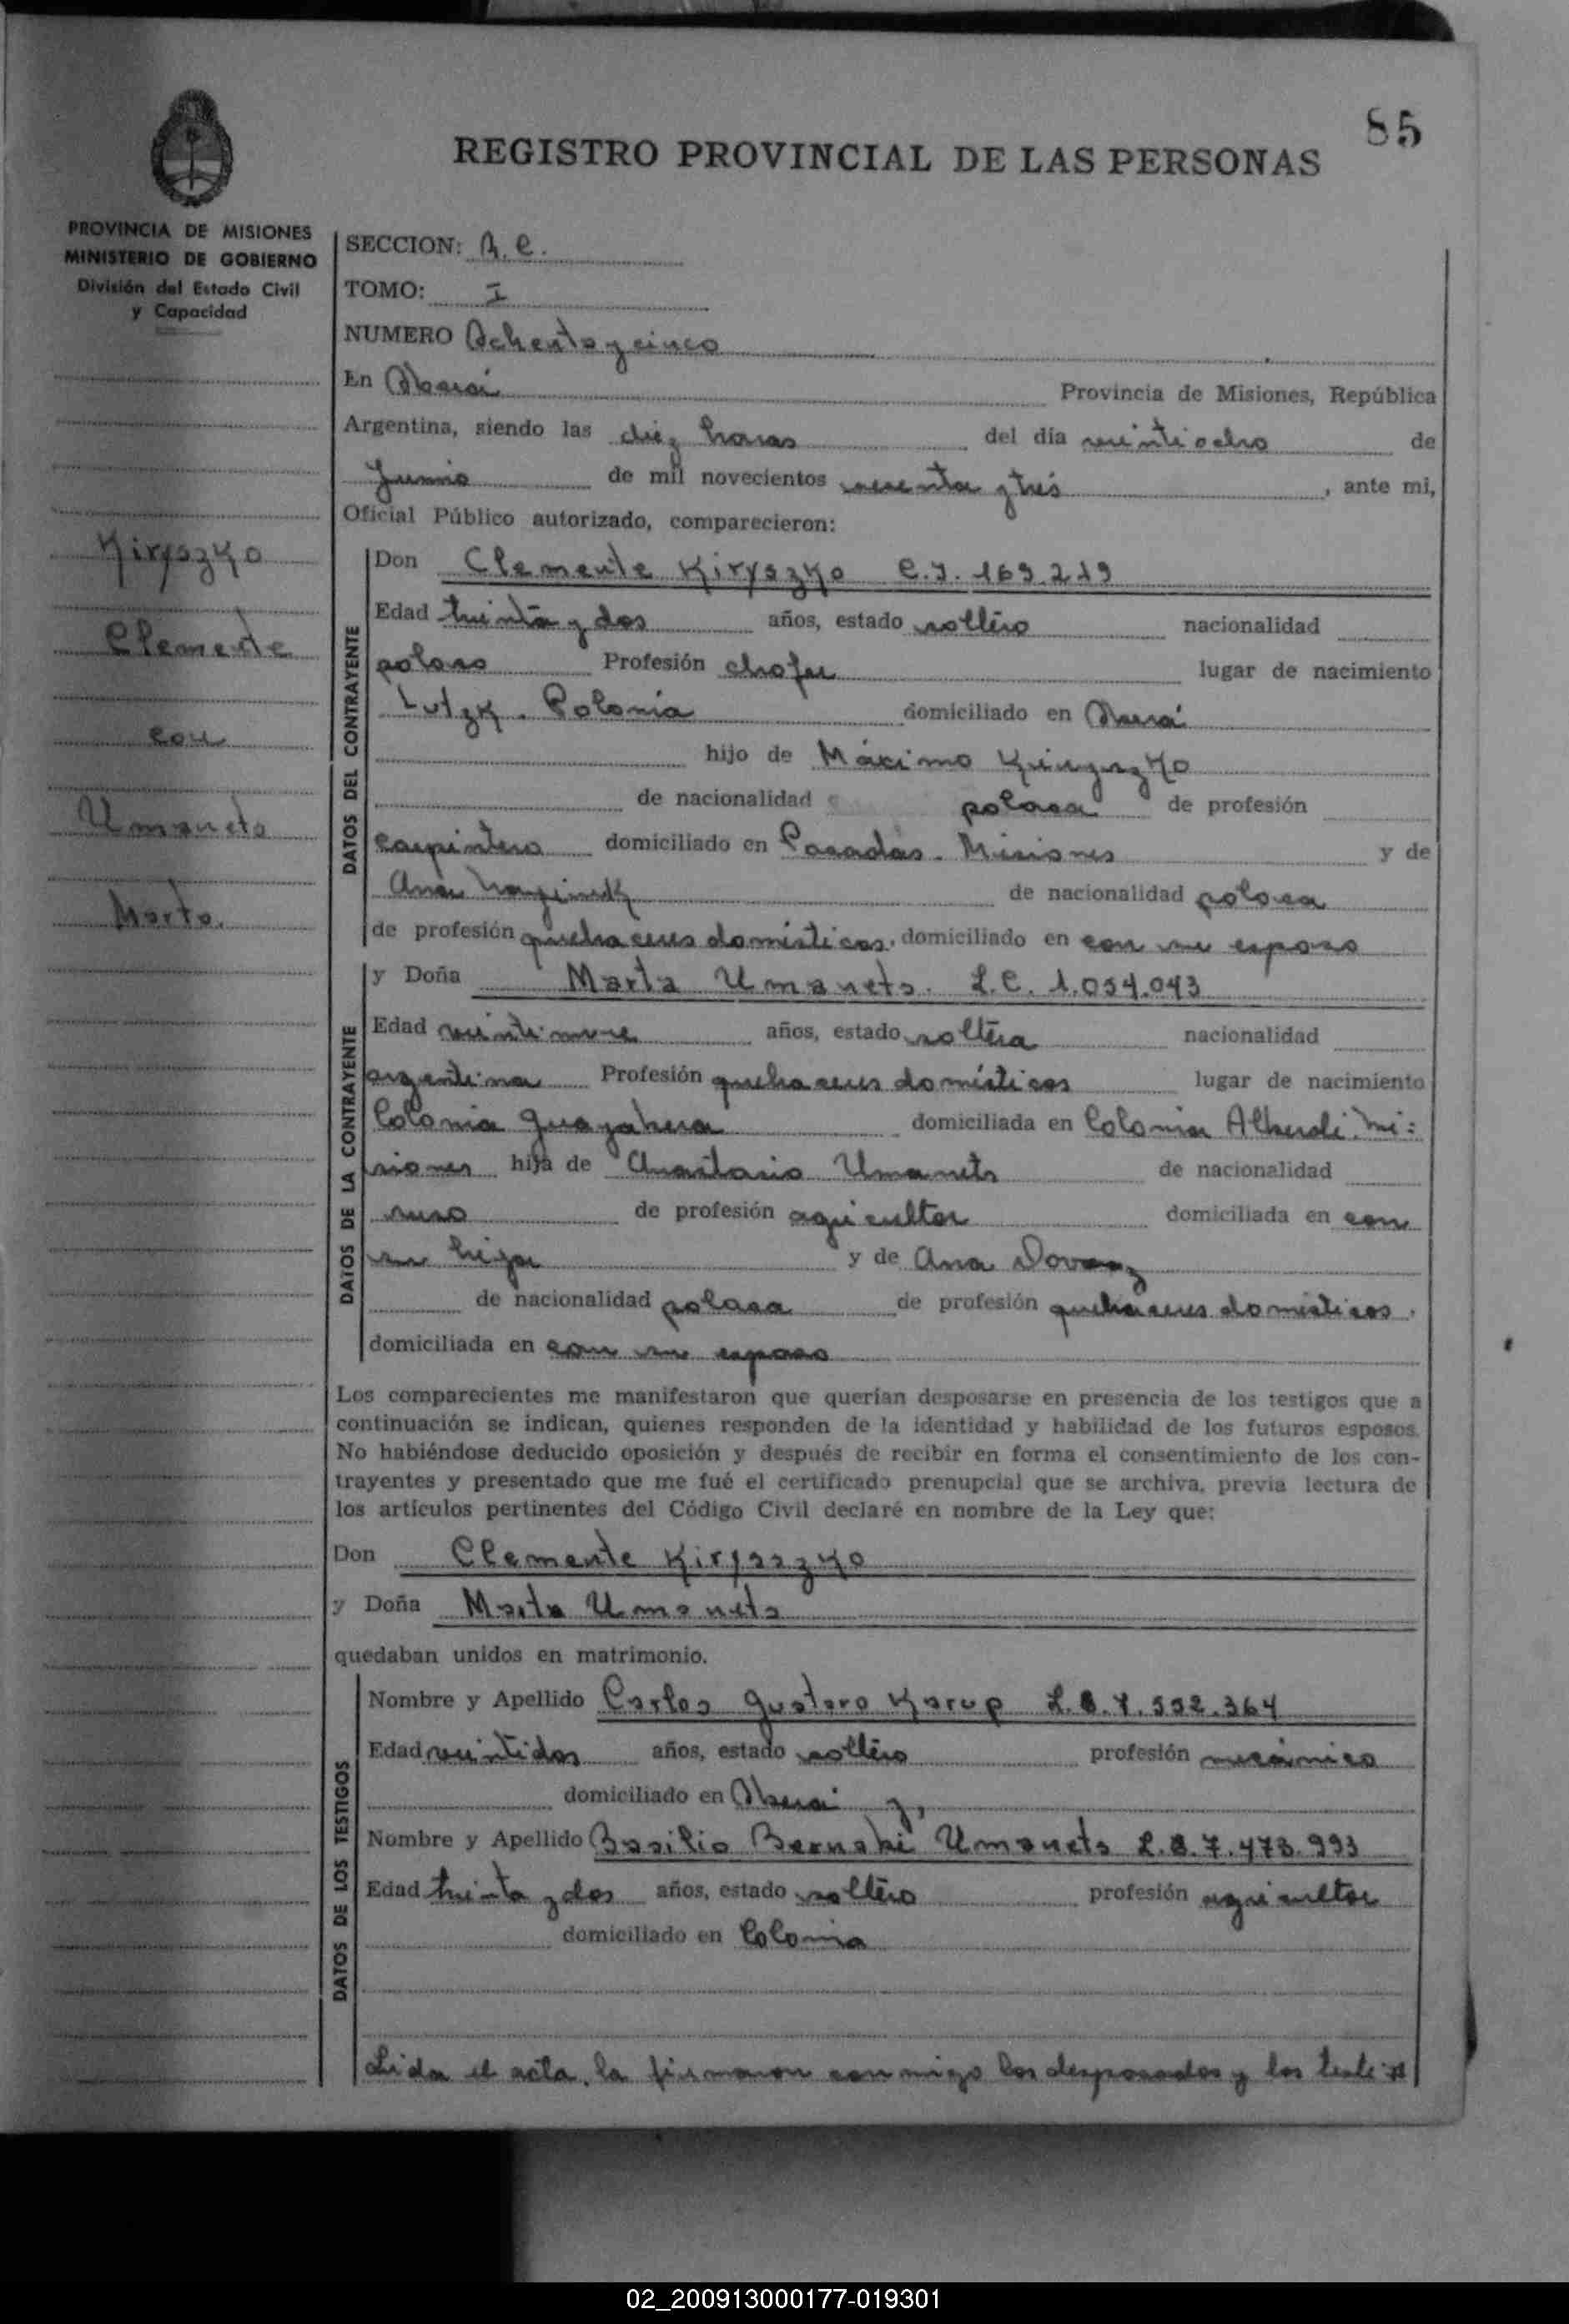 85
REGISTRO PROVINCIAL DE LAS PERSONAS
PROVINCIA DE MISIONES
MINISTERIO DE GOBIERNO
División del Estado Civil
y Capacidad
Kiryszko
Clemente
con
Umanets
Marta.
SECCION: R. C.
TOMO: I
NUMERO Ochenta y cinco
En Oberá Provincia de Misiones, República
Argentina, siendo las diez horas del día veintiocho de
Junio de mil novecientos sesenta y tres, ante mi,
Oficial Público autorizado, comparecieron:
DATOS DEL CONTRAYENTE
Don Clemente Kiryszko C.I. 169.219
Edad treinta y dos años, estado soltero nacionalidad
polaco Profesión chofer lugar de nacimiento
Lutzk. Polonia domiciliado en Oberá
hijo de Máximo Kiryszko
de nacionalidad polaca de profesión
carpintero domiciliado en Posadas. Misiones y de
Ana de nacionalidad polaca
de profesión quehaceres domésticos. domiciliado en con su esposo
DATOS DE LA CONTRAYENTE
y Doña Marta Umanets. L.C. 1.054.043
Edad veintinueve años, estado soltera nacionalidad
argentina Profesión quehaceres domésticos lugar de nacimiento
Colonia Guayabera domiciliada en Colonia Alberdi. Mi:
siones hija de Anastasio Umanets de nacionalidad
ruso de profesión agricultor domiciliada en con
su hija y de Ana
de nacionalidad polaca de profesión quehaceres domésticos.
domiciliada en con su esposo
Los comparecientes me manifestaron que querían desposarse en presencia de los testigos que a
continuación se indican, quienes responden de la identidad y habilidad de los futuros esposos.
No habiéndose deducido oposición y después de recibir en forma el consentimiento de los con-
trayentes y presentado que me fué el certificado prenupcial que se archiva, previa lectura de
los artículos pertinentes del Código Civil declaré en nombre de la Ley que:
Don Clemente Kiryszko
y Doña Marta Umanets
quedaban unidos en matrimonio.
DATOS DE LOS TESTIGOS
Nombre y Apellido Carlos Gustavo Karup L.E. 7.552.364
Edad veintidos años, estado soltero profesión mecánico
domiciliado en Oberá y,
Nombre y Apellido Basilio Bernabé Umanets L.E. 7.473.993
Edad treinta y dos años, estado soltero profesión agricultor
domiciliado en Colonia
Lida el acta, la firmaron conmigo los desposados y los testi:
02_200913000177-019301